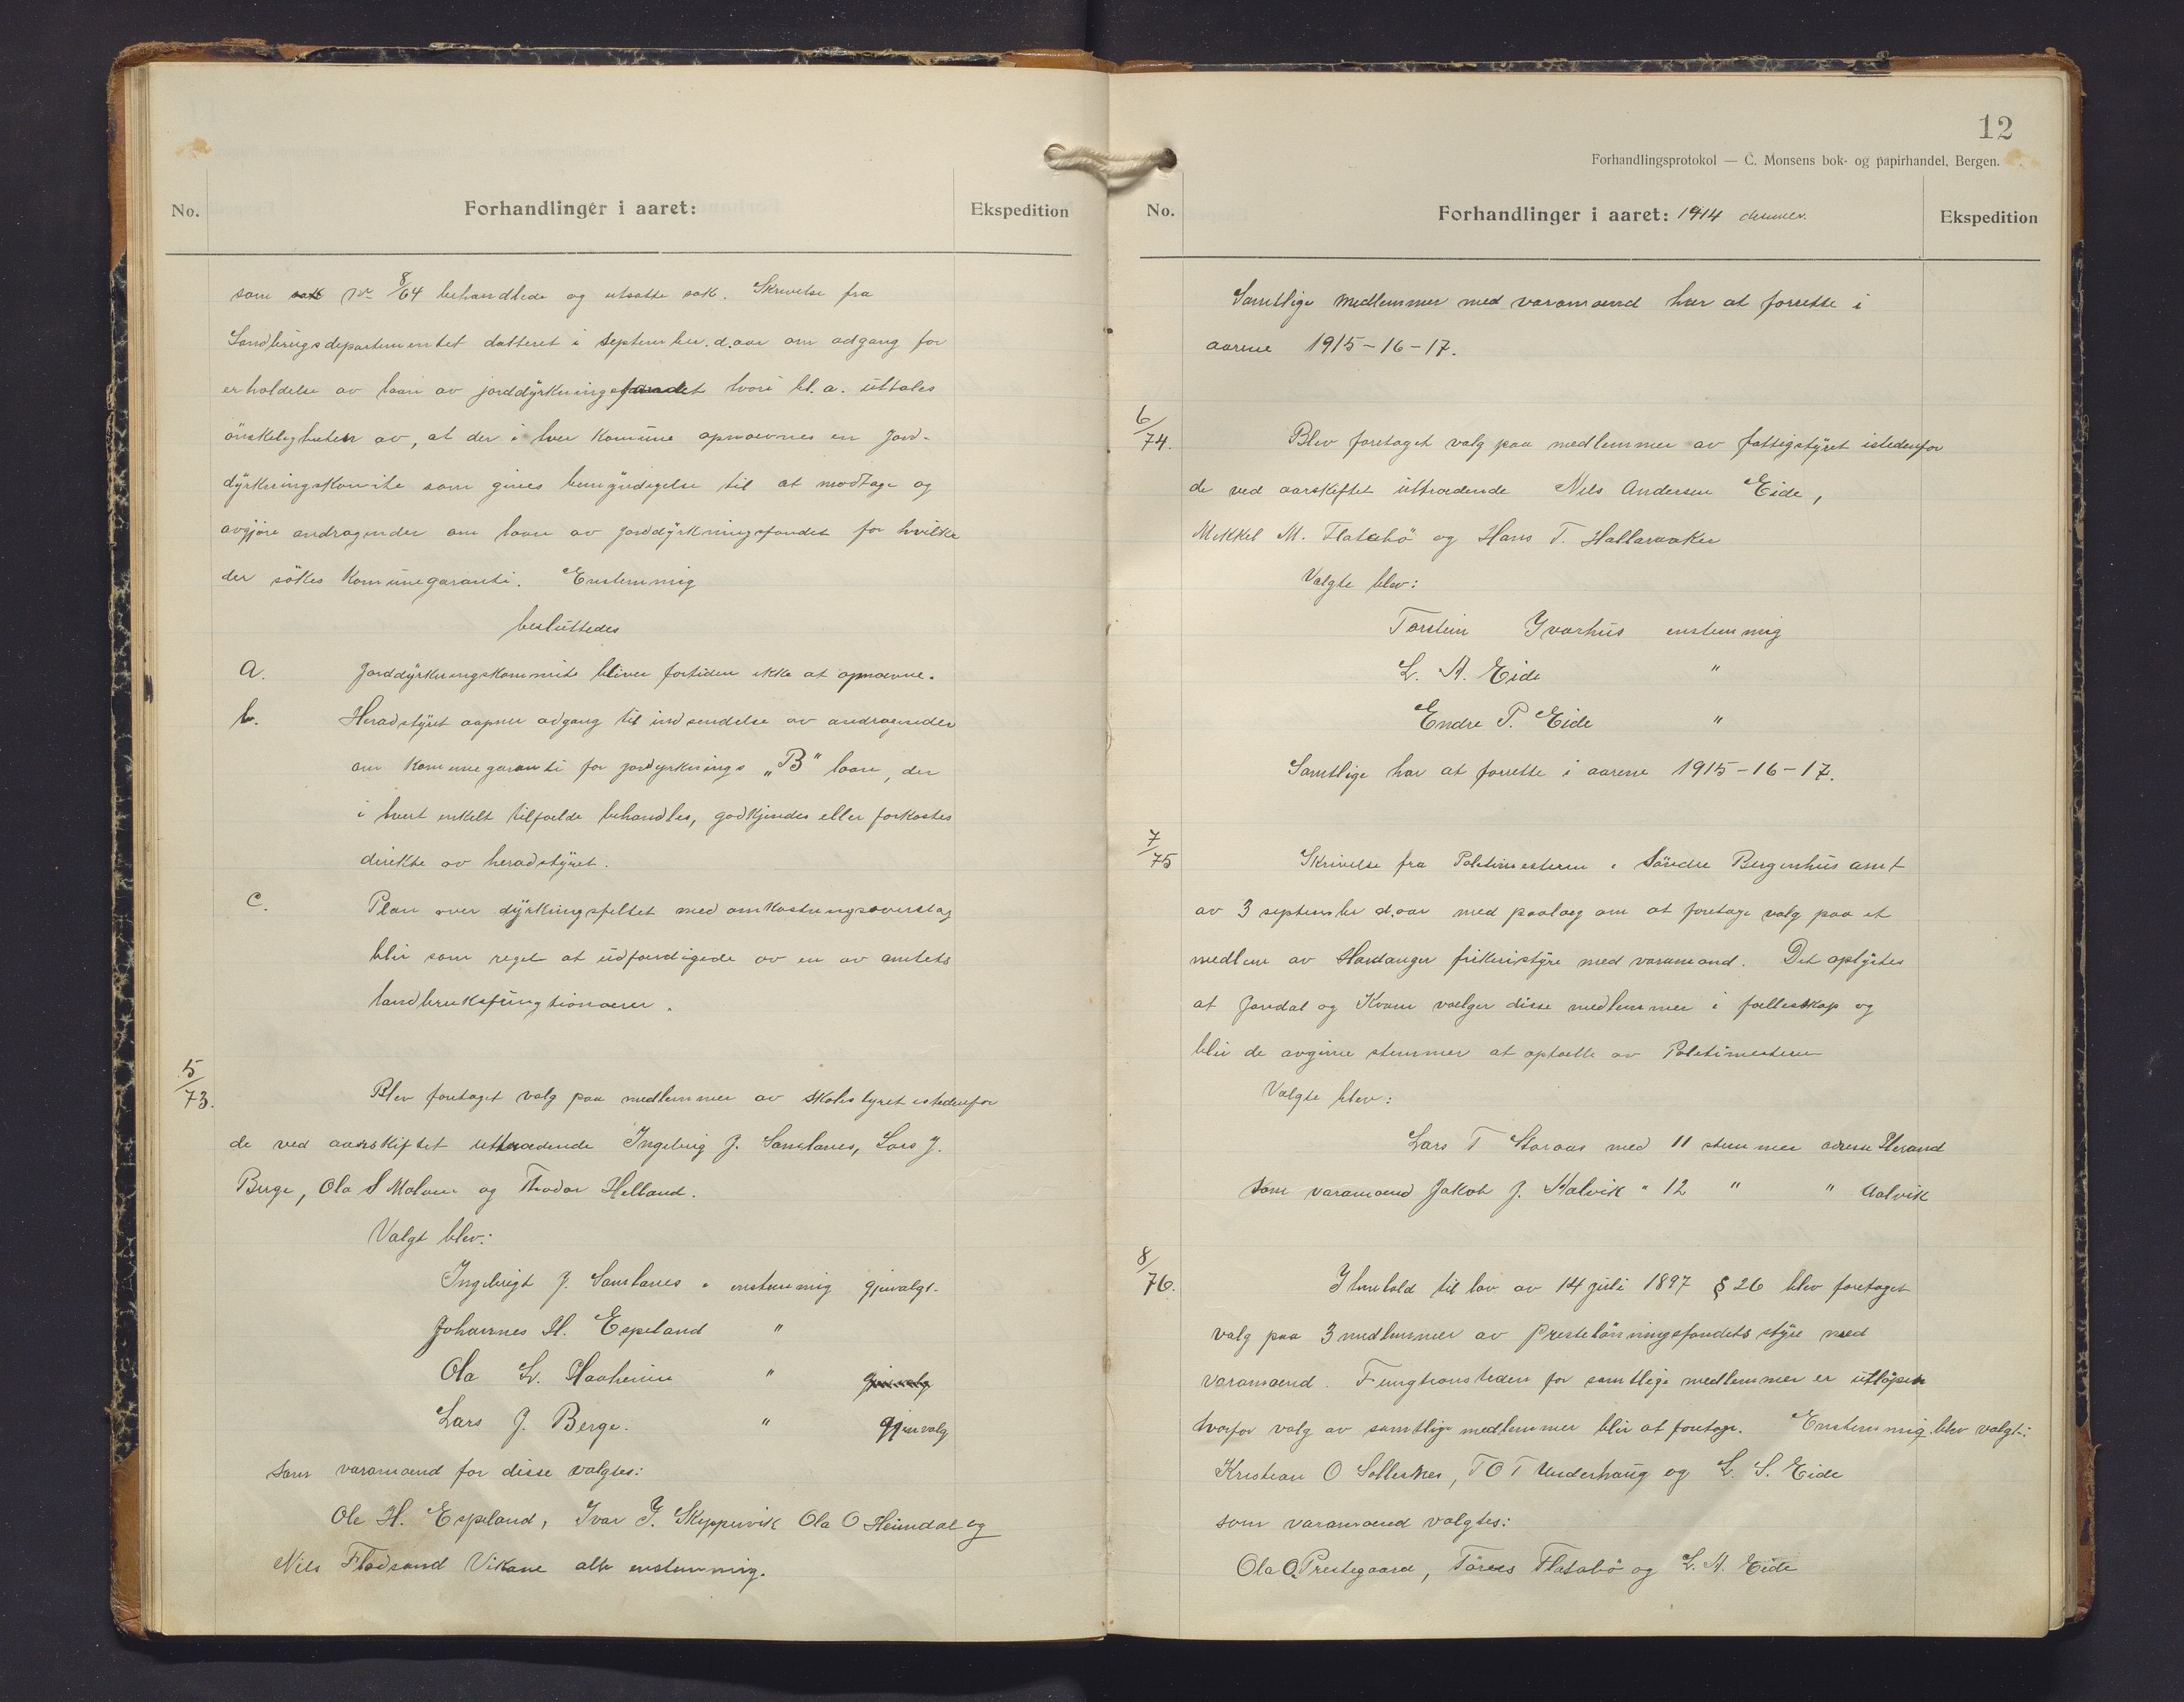 No.
Forhandlinger i aaret:
Ekspedition
som sak No 8/64 behandlede og utsatte sak. Skrivelse fra
Landbrugsdepartementet datteret i september d.aar om adgang for
erholdelse av laan av jorddÿrkningsfondet hvori bl. a. üttales
önskeligheten av, at der i hver Komüne opnævnes en Jord-
dÿrkningskomite som gives bemÿndigelse til at modtage og
avgjöre andragender om laan av Jorddÿrkningsfondet for hvilke
der sökes Komünegaranti. Enstemmig
beslüttedes
a. Jorddÿrkningskommite bliver fortiden ikke at opnævne.
b. Heradstÿret aapner adgang til indsendelse av andragender
om Kommunegaranti for jordyrknings „B" laan, der
i hvert enkelt tilfælde behandles, godkjendes eller forkastes
direkte av heradstÿret.
C. Plan over dÿrkningsfeltet med omkostningsoverslag
blir som regel at üdfærdigede av en av amtets
landbruksfüngtionærer.
5/73. Blev foretaget valg paa medlemmer av skolestyret istedenfor
de ved aarskiftet uttrædende Ingebrig J. Samlanes, Lars J.
Berge, Ola S Molven og Thodor Helland.
Valgt blev:
Ingebrigt J. Samlanes enstemmig gjenvalgt.
Johannes H. Espeland "
Ola L. Haaheim " gjenvalg
Lars J. Berge. " gjenvalg
som varamænd for disse valgtes:
Ole H. Espeland, Ivar J. Skeppervik Ola O Heimdal og
Nils Flodsand Vikane alle enstemmig.
12
Forhandlingsprotokol — C. Monsens bok- og papirhandel, Bergen.
No.
Forhandlinger i aaret: 1914
Ekspedition
Samtlige medlemmer med varamænd har at forrette i
aarene 1915-16-17.
6/74. Blev foretaget valg paa medlemmer av fattigstÿret istedenfor
de ved aarskiftet üttrædende Nils Andersen Eide,
Mikkel M. Flatebö og Hans T. Hallaraaker
Valgte blev:
Torstein Yvarhüs enstemmig
L. A. Eide "
Endre P. Eide "
Samtlige har at forrette i aarene 1915-16-17.
7/75 Skrivelse fra Politimesteren i Söndre Bergenhüs amt
av 3 september d.aar med paalæg om at foretage valg paa et
medlem av Hardanger fiskeristÿre med varamand. Det oplÿstes
at Jondal og Kvam vælger disse medlemmer i fællesskap og
blir de avgivne stemmer at optælle av Politimesteren
Valgte blev:
Lars T Storaas med 11 stemmer adresse Strand
som varamænd Jakob J. Aalvik " 12 " " Aalvik
8/76. I henhold til lov av 14 jüli 1897 § 26 blev foretaget
valg paa 3 medlemmer av Prestelönningsfondets stÿre med
varamænd. Fungtionstiden for samtlige medlemmer er ütlöpen
hvorfor valg av samtlige medlemmer blir at foretage. Enstemmig blev valgt:
Kristian O Sollesnes, T O T Underhaüg og L. S. Eide
som varamænd valgtes:
Ola O. Prestegaard, Töres Flatabö og L. A. Eide